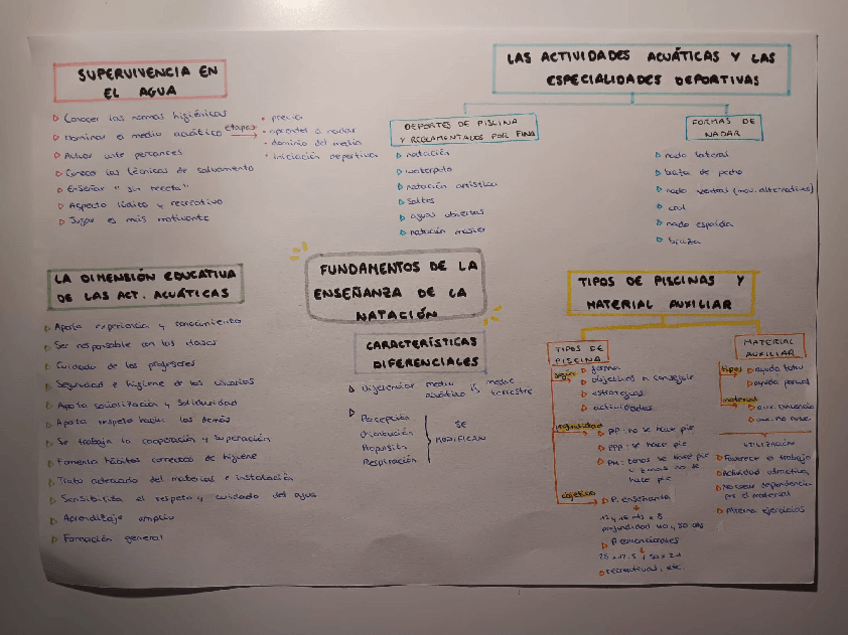 SUPERVIVENCIA EN
EL AGUA
Conocer las normas higiénicas
Dominar o medio acuático etapas
previa
aprender a nadar
dominio del medio
iniciación deportiva
Actuar ante percances
Conoce las técnicas de salvamento
Enseñar "sin receta"
Aspecto lúdico y recreativo
Jugar es más motivante
LAS ACTIVIDADES ACUÁTICAS Y LAS
ESPECIALIDADES DEPORTIVAS
DEPORTES DE PISCINA
Y REGLAMENTADOS POR FINA
natación
waterpolo
natación artística
saltos
aguas abiertas
natación master
FORMAS DE
NADAR
nado lateral
braza de pecho
nado ventral (mov. alternativos)
crol
nado espalda
braza
LA DIMENSIÓN EDUCATIVA
DE LAS ACT. ACUÁTICAS
Aporta experiencia y conocimiento
Ser responsable con las clases
Cuidado de los profesores
Seguridad e higiene de los usuarios
Aporta socialización y solidaridad
Aporta respeto hacia los demás
Se trabaja la cooperación y superación
Fomenta hábitos correctos de higiene
Trato adecuado del material e instalación
Sensibiliza el respeto y cuidado del agua
Aprendizaje amplio
Formación general
FUNDAMENTOS DE LA
ENSEÑANZA DE LA
NATACIÓN
CARACTERÍSTICAS
DIFERENCIALES
Diferenciar medio acuático medio terrestre
Percepción
Orientación
Propulsión
Respiración
SE
MODIFICAN
TIPOS DE PISCINAS Y
MATERIAL AUXILIAR
TIPOS DE
PISCINA
según
forma
objetivos a conseguir
estrategias
actividades
profundidad
PP: no se hace pie
PPP: se hace pie
PM: zonas se hace pie
y zonas no se
hace pie
objetivo
P. enseñanza
profundidad 40 y 80 cms
P. convencionales
recreativas, etc
MATERIAL
AUXILIAR
tipos
ayuda total
ayuda parcial
material
aux. no
UTILIZACIÓN
Favorecer o trabajo
Actividad atractiva
No crear dependencia
por el material
Alterna ejercicios